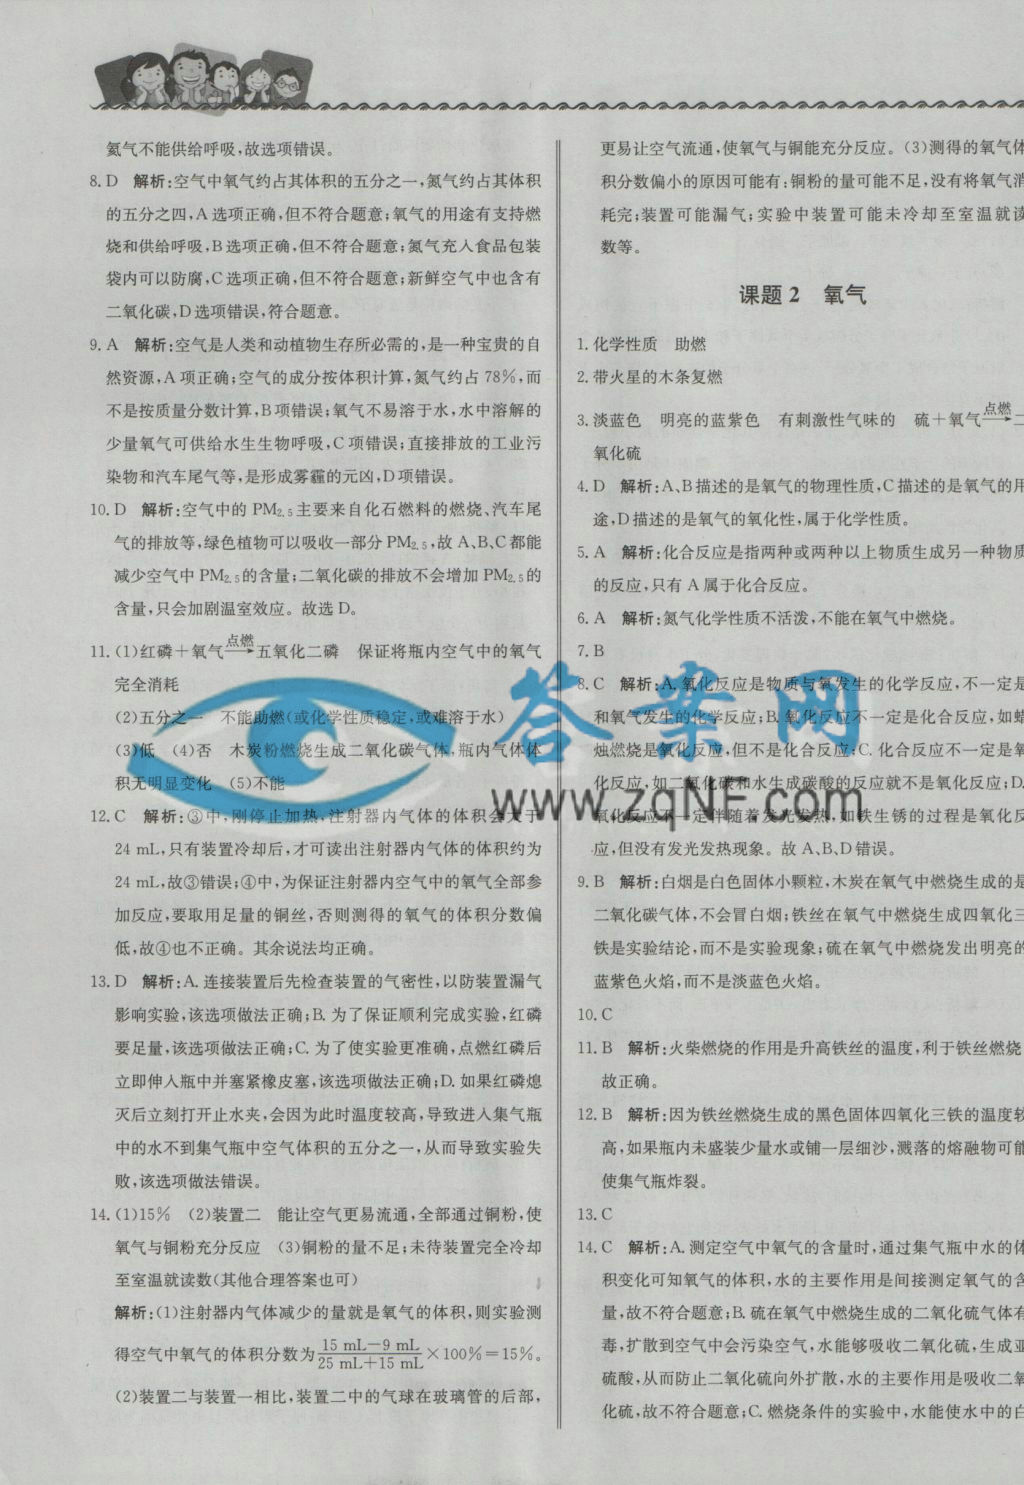 氦气不能供给呼吸,故选项错误。
8. D 解析:空气中氧气约占其体积的五分之一,氮气约占其体积
的五分之四,A选项正确,但不符合题意;氧气的用途有支持燃
烧和供给呼吸,B选项正确,但不符合题意;氮气充入食品包装
袋内可以防腐,C选项正确,但不符合题意;新鲜空气中也含有
二氧化碳,D选项错误,符合题意。
9. A 解析:空气是人类和动植物生存所必需的,是一种宝贵的自
然资源,A项正确;空气的成分按体积计算,氮气约占78%,而
不是按质量分数计算,B项错误;氧气不易溶于水,水中溶解的
少量氧气可供给水生生物呼吸,C项错误;直接排放的工业污
染物和汽车尾气等,是形成雾霾的元凶,D项错误。
10. D 解析:空气中的PM2.5主要来自化石燃料的燃烧、汽车尾
气的排放等,绿色植物可以吸收一部分PM2.5,故A、B、C都能
减少空气中PM2.5的含量;二氧化碳的排放不会增加PM2.5的
含量,只会加剧温室效应。故选D。
11. (1)红磷+氧气 点燃→ 五氧化二磷 保证将瓶内空气中的氧气
完全消耗
(2)五分之一 不能助燃(或化学性质稳定,或难溶于水)
(3)低 (4)否 木炭粉燃烧生成二氧化碳气体,瓶内气体体
积无明显变化 (5)不能
12. C 解析:③中,刚停止加热,注射器内气体的体积会大于
24 mL,只有装置冷却后,才可读出注射器内气体的体积约为
24 mL,故③错误;④中,为保证注射器内空气中的氧气全部参
加反应,要取用足量的铜丝,否则测得的氧气的体积分数偏
低,故④也不正确。其余说法均正确。
13. D 解析:A.连接装置后先检查装置的气密性,以防装置漏气
影响实验,该选项做法正确;B.为了保证顺利完成实验,红磷
要足量,该选项做法正确;C.为了使实验更准确,点燃红磷后
立即伸入瓶中并塞紧橡皮塞,该选项做法正确;D.如果红磷熄
灭后立刻打开止水夹,会因为此时温度较高,导致进入集气瓶
中的水不到集气瓶中空气体积的五分之一,从而导致实验失
败,该选项做法错误。
14. (1)15% (2)装置二 能让空气更易流通,全部通过铜粉,使
氧气与铜粉充分反应 (3)铜粉的量不足;未待装置完全冷却
至室温就读数(其他合理答案也可)
解析:(1)注射器内气体减少的量就是氧气的体积,则实验测
得空气中氧气的体积分数为 (15 mL-9 mL)/(25 mL+15 mL) ×100%=15%。
(2)装置二与装置一相比,装置二中的气球在玻璃管的后部,
更易让空气流通,使氧气与铜能充分反应。(3)测得的氧气体
积分数偏小的原因可能有:铜粉的量可能不足,没有将氧气消
耗完;装置可能漏气;实验中装置可能未冷却至室温就读
数等。
课题2 氧气
1. 化学性质 助燃
2. 带火星的木条复燃
3. 淡蓝色 明亮的蓝紫色 有刺激性气味的 硫+氧气 点燃→ 二
氧化硫
4. D 解析:A、B描述的是氧气的物理性质,C描述的是氧气的用
途,D描述的是氧气的氧化性,属于化学性质。
5. A 解析:化合反应是指两种或两种以上物质生成另一种物质
的反应,只有A属于化合反应。
6. A 解析:氮气化学性质不活泼,不能在氧气中燃烧。
7. B
8. C 解析:A.氧化反应是物质与氧发生的化学反应,不一定是
和氧气发生的化学反应;B.氧化反应不一定是化合反应,如蜡
烛燃烧是氧化反应,但不是化合反应;C.化合反应不一定是氧
化反应,如二氧化碳和水生成碳酸的反应就不是氧化反应;D.
氧化反应不一定伴随着发光发热,如铁生锈的过程是氧化反
应,但没有发光发热现象。故A、B、D错误。
9. B 解析:白烟是白色固体小颗粒,木炭在氧气中燃烧生成的是
二氧化碳气体,不会冒白烟;铁丝在氧气中燃烧生成四氧化三
铁是实验结论,而不是实验现象;硫在氧气中燃烧发出明亮的
蓝紫色火焰,而不是淡蓝色火焰。
10. C
11. B 解析:火柴燃烧的作用是升高铁丝的温度,利于铁丝燃烧
故正确。
12. B 解析:因为铁丝燃烧生成的黑色固体四氧化三铁的温度较
高,如果瓶内未盛装少量水或铺一层细沙,溅落的熔融物可能
使集气瓶炸裂。
13. C
14. C 解析:A.测定空气中氧气的含量时,通过集气瓶中水的体
积变化可知氧气的体积,水的主要作用是间接测定氧气的含
量,故不符合题意;B.硫在氧气中燃烧生成的二氧化硫气体有
毒,扩散到空气中会污染空气,水能够吸收二氧化硫,生成亚
硫酸,从而防止二氧化硫向外扩散,水的主要作用是吸收二氧
化硫,故不符合题意;C.燃烧条件的实验中,水能使水中的白
答案网
www.zqNF.com